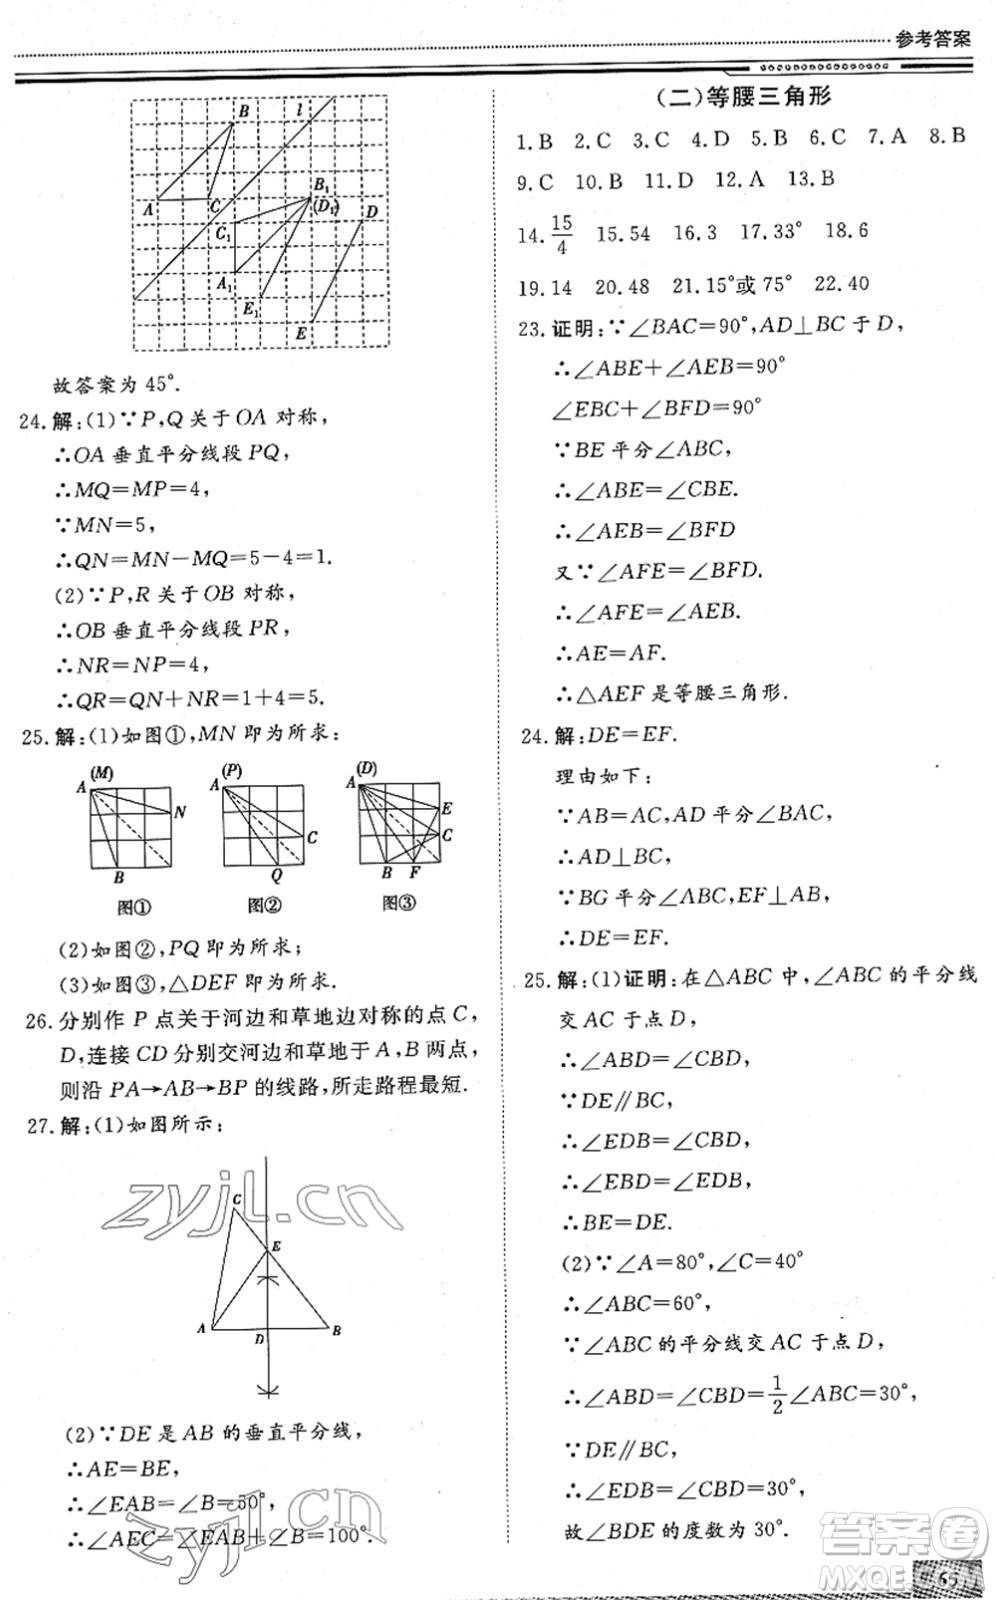 参考答案
B
l
A
C
B₁
(D₁)
D
C₁
A₁
E₁
E
故答案为 45°.
24.解:(1)∵P,Q 关于 OA 对称,
∴OA 垂直平分线段 PQ,
∴MQ=MP=4,
∵MN=5,
∴QN=MN−MQ=5−4=1.
(2)∵P,R 关于 OB 对称,
∴OB 垂直平分线段 PR,
∴NR=NP=4,
∴QR=QN+NR=1+4=5.
25.解:(1)如图①,MN 即为所求:
(M)
A
N
B
图①
(P)
A
C
Q
图②
(D)
A
E
C
B
F
图③
(2)如图②,PQ 即为所求;
(3)如图③,△DEF 即为所求.
26.分别作 P 点关于河边和草地边对称的点 C,
D,连接 CD 分别交河边和草地于 A,B 两点,
则沿 PA→AB→BP 的线路,所走路程最短.
27.解:(1)如图所示:
C
E
A
D
B
(2)∵DE 是 AB 的垂直平分线,
∴AE=BE,
∴∠EAB=∠B=50°,
∴∠AEC=∠EAB+∠B=100°.
(二)等腰三角形
1.B 2.C 3.C 4.D 5.B 6.C 7.A 8.B
9.C 10.B 11.D 12.A 13.B
14.15/4 15.54 16.3 17.33° 18.6
19.14 20.48 21.15°或 75° 22.40
23.证明:∵∠BAC=90°,AD⊥BC 于 D,
∴∠ABE+∠AEB=90°
∠EBC+∠BFD=90°
∵BE 平分∠ABC,
∴∠ABE=∠CBE.
∴∠AEB=∠BFD
又∵∠AFE=∠BFD.
∴∠AFE=∠AEB.
∴AE=AF.
∴△AEF 是等腰三角形.
24.解:DE=EF.
理由如下:
∵AB=AC,AD 平分∠BAC,
∴AD⊥BC,
∵BG 平分∠ABC,EF⊥AB,
∴DE=EF.
25.解:(1)证明:在△ABC 中,∠ABC 的平分线
交 AC 于点 D,
∴∠ABD=∠CBD,
∵DE∥BC,
∴∠EDB=∠CBD,
∴∠EBD=∠EDB,
∴BE=DE.
(2)∵∠A=80°,∠C=40°
∴∠ABC=60°,
∵∠ABC 的平分线交 AC 于点 D,
∴∠ABD=∠CBD=1/2∠ABC=30°,
∵DE∥BC,
∴∠EDB=∠CBD=30°,
故∠BDE 的度数为 30°.
zyjl.cn
zyjl.cn
答案圈
MXQE.COM
65